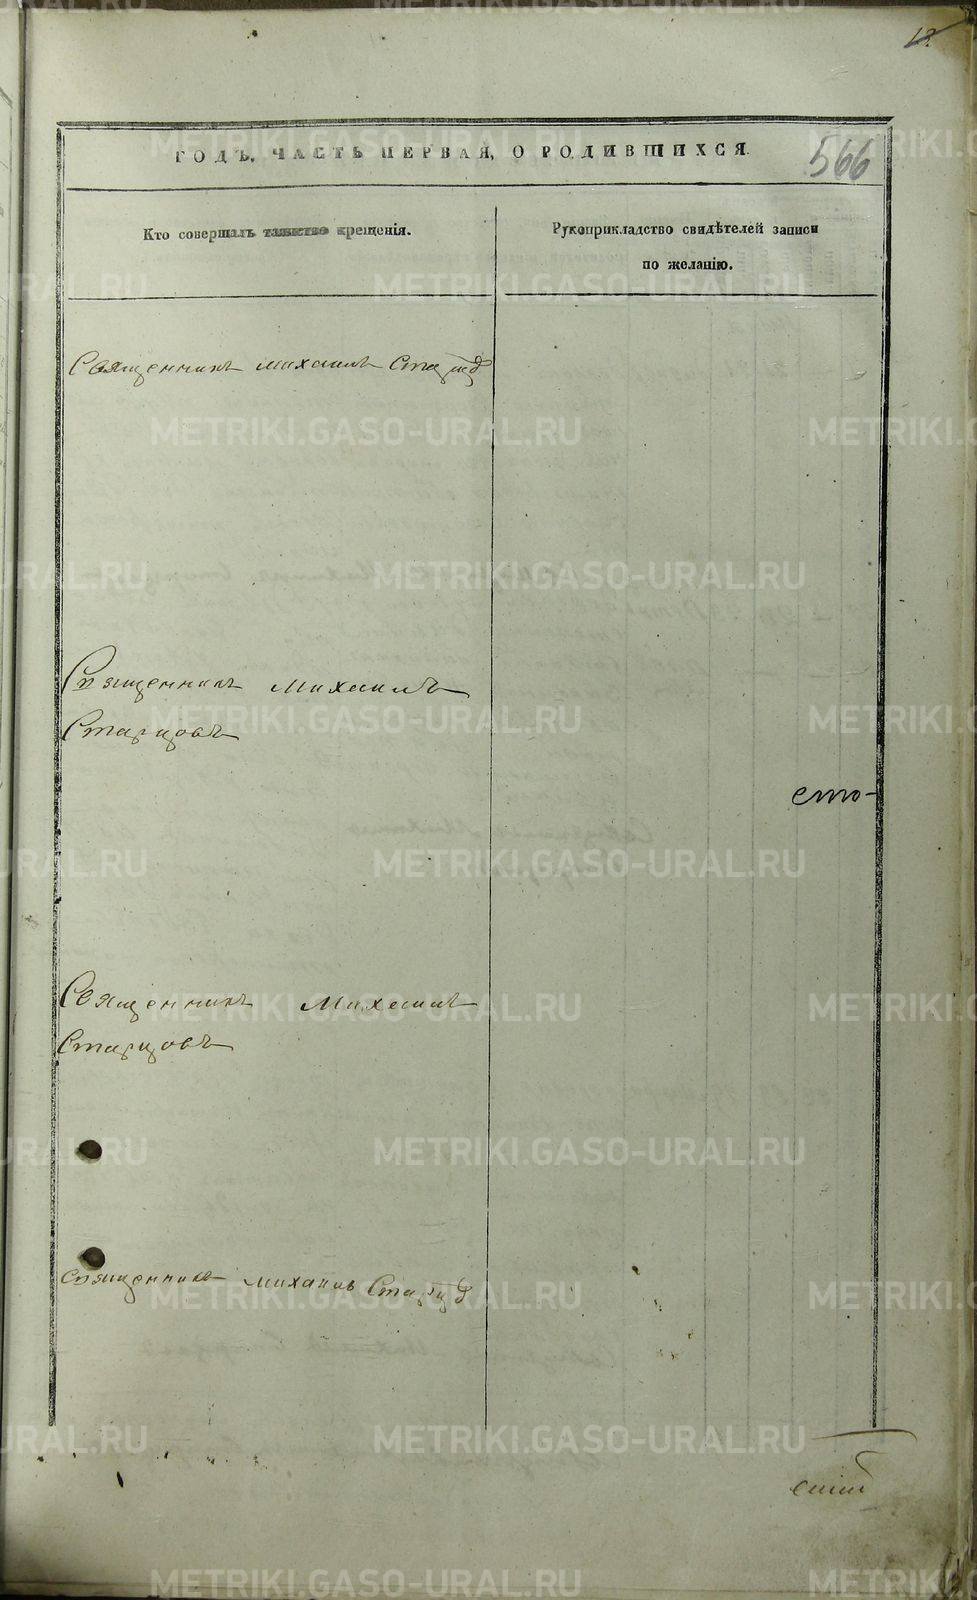 13.
ГОДЪ. ЧАСТЬ ПЕРВАЯ, О РОДИВШИХСЯ.
566
Кто совершалъ таинство крещенія.
Рукоприкладство свидѣтелей записи
по желанію.
Священникъ Михаилъ Старц
Священникъ Михаилъ
Старцовъ
сто-
Священникъ Михаилъ
Старцовъ
Священникъ Михаилъ Старц
METRIKI.GASO-URAL.RU